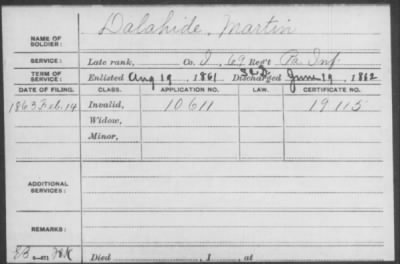 Dalahide, Martin
NAME OF SOLDIER:
SERVICE: Late rank, Co. I, 69 Reg't Pa Inf
TERM OF SERVICE: Enlisted Aug 19, 1861. Discharged June 19, 1862
DATE OF FILING. CLASS. APPLICATION NO. LAW. CERTIFICATE NO.
1863 Feb. 14 Invalid, 10611 19115
Widow,
Minor,
ADDITIONAL SERVICES:
REMARKS:
Died , 1 , at